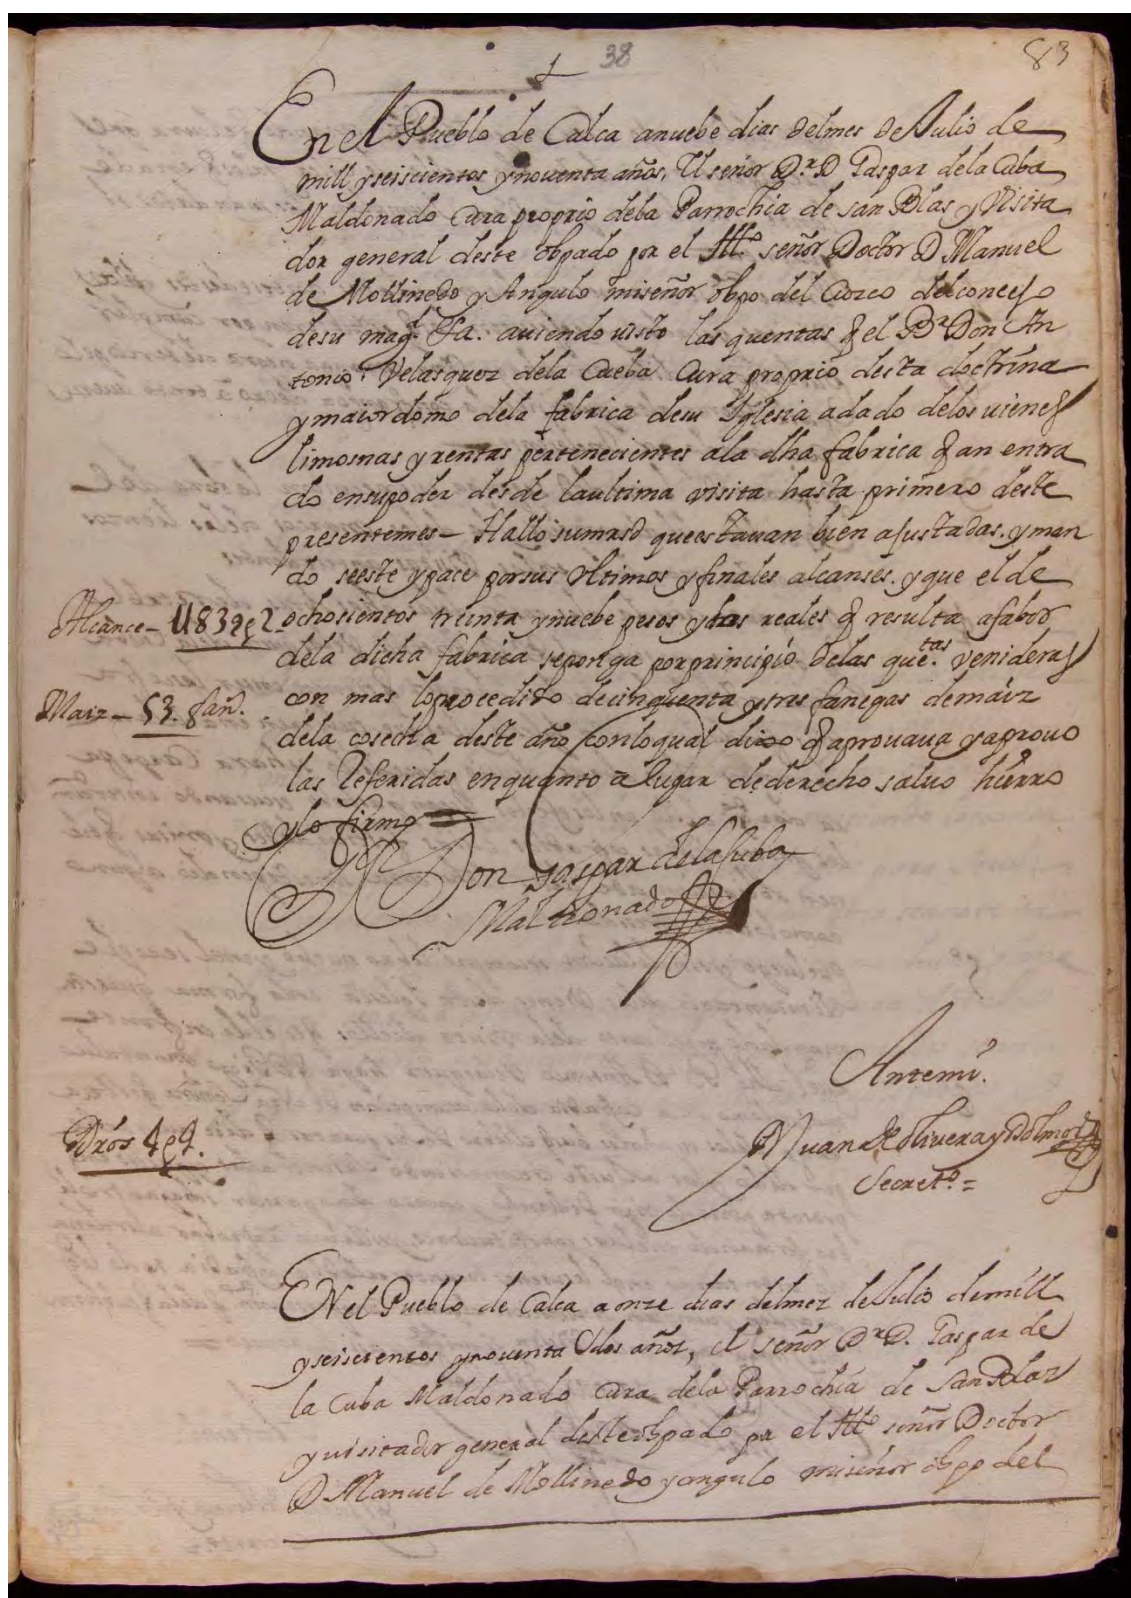 38
83
En el Pueblo de Calca anuebe dias delmes de Julio de
mill yseiscientos ynoventa años. El señor Dr. D Gaspar dela Cuba
Maldonado Cura proprio dela Parrochia de san Blas y Visita
dor general deste obpado por el Illo. señor Doctor D Manuel
de Mollinedo y Angulo miseñor obpo del Cuzco del concejo
desu mag. Fa. auiendo visto las quentas q el Br Don An
tonio Velasquez dela Cueba Cura proprio desta doctrina
ymaiordomo dela fabrica desu Yglesia adado delos vienes
limosnas y rentas pertenecientes ala dha fabrica q an entra
do ensupoder desde laultima visita hasta primero deste
presentemes - Hallo sumrsd queestauan bien ajustadas. y man
do seeste ypace porsus Vltimos yfinales alcanses. y que el de
Alcance - U839p2 - ochosientos treinta ynuebe pesos ydos reales q resulta afabor
dela dicha fabrica seponga porprincipio delas quetas. venideras
Maiz - 53. fan. con mas loprocedido decinquenta ytres fanegas demáiz
dela cosecha deste año Conloqual dixo q aprouaua yaprouo
las Referidas enquanto a lugar dederecho saluo hierro
ylo firmo =
Don Gaspar delaCuba
Maldonado
Antemi.
Dros 4p4.
Juan de oliuera y Dolmos
Secreto. =
ENel Pueblo de Calca aonze dias delmez deJulio demill
yseiscientos ynoventa Ydos años, el señor Dr D. Gaspar de
la Cuba Maldonado Cura dela Parrochia de San Blas
yvisitador general desteobpado por el Illo señor Doctor
D Manuel de Mollinedo yangulo miseñor obpo del